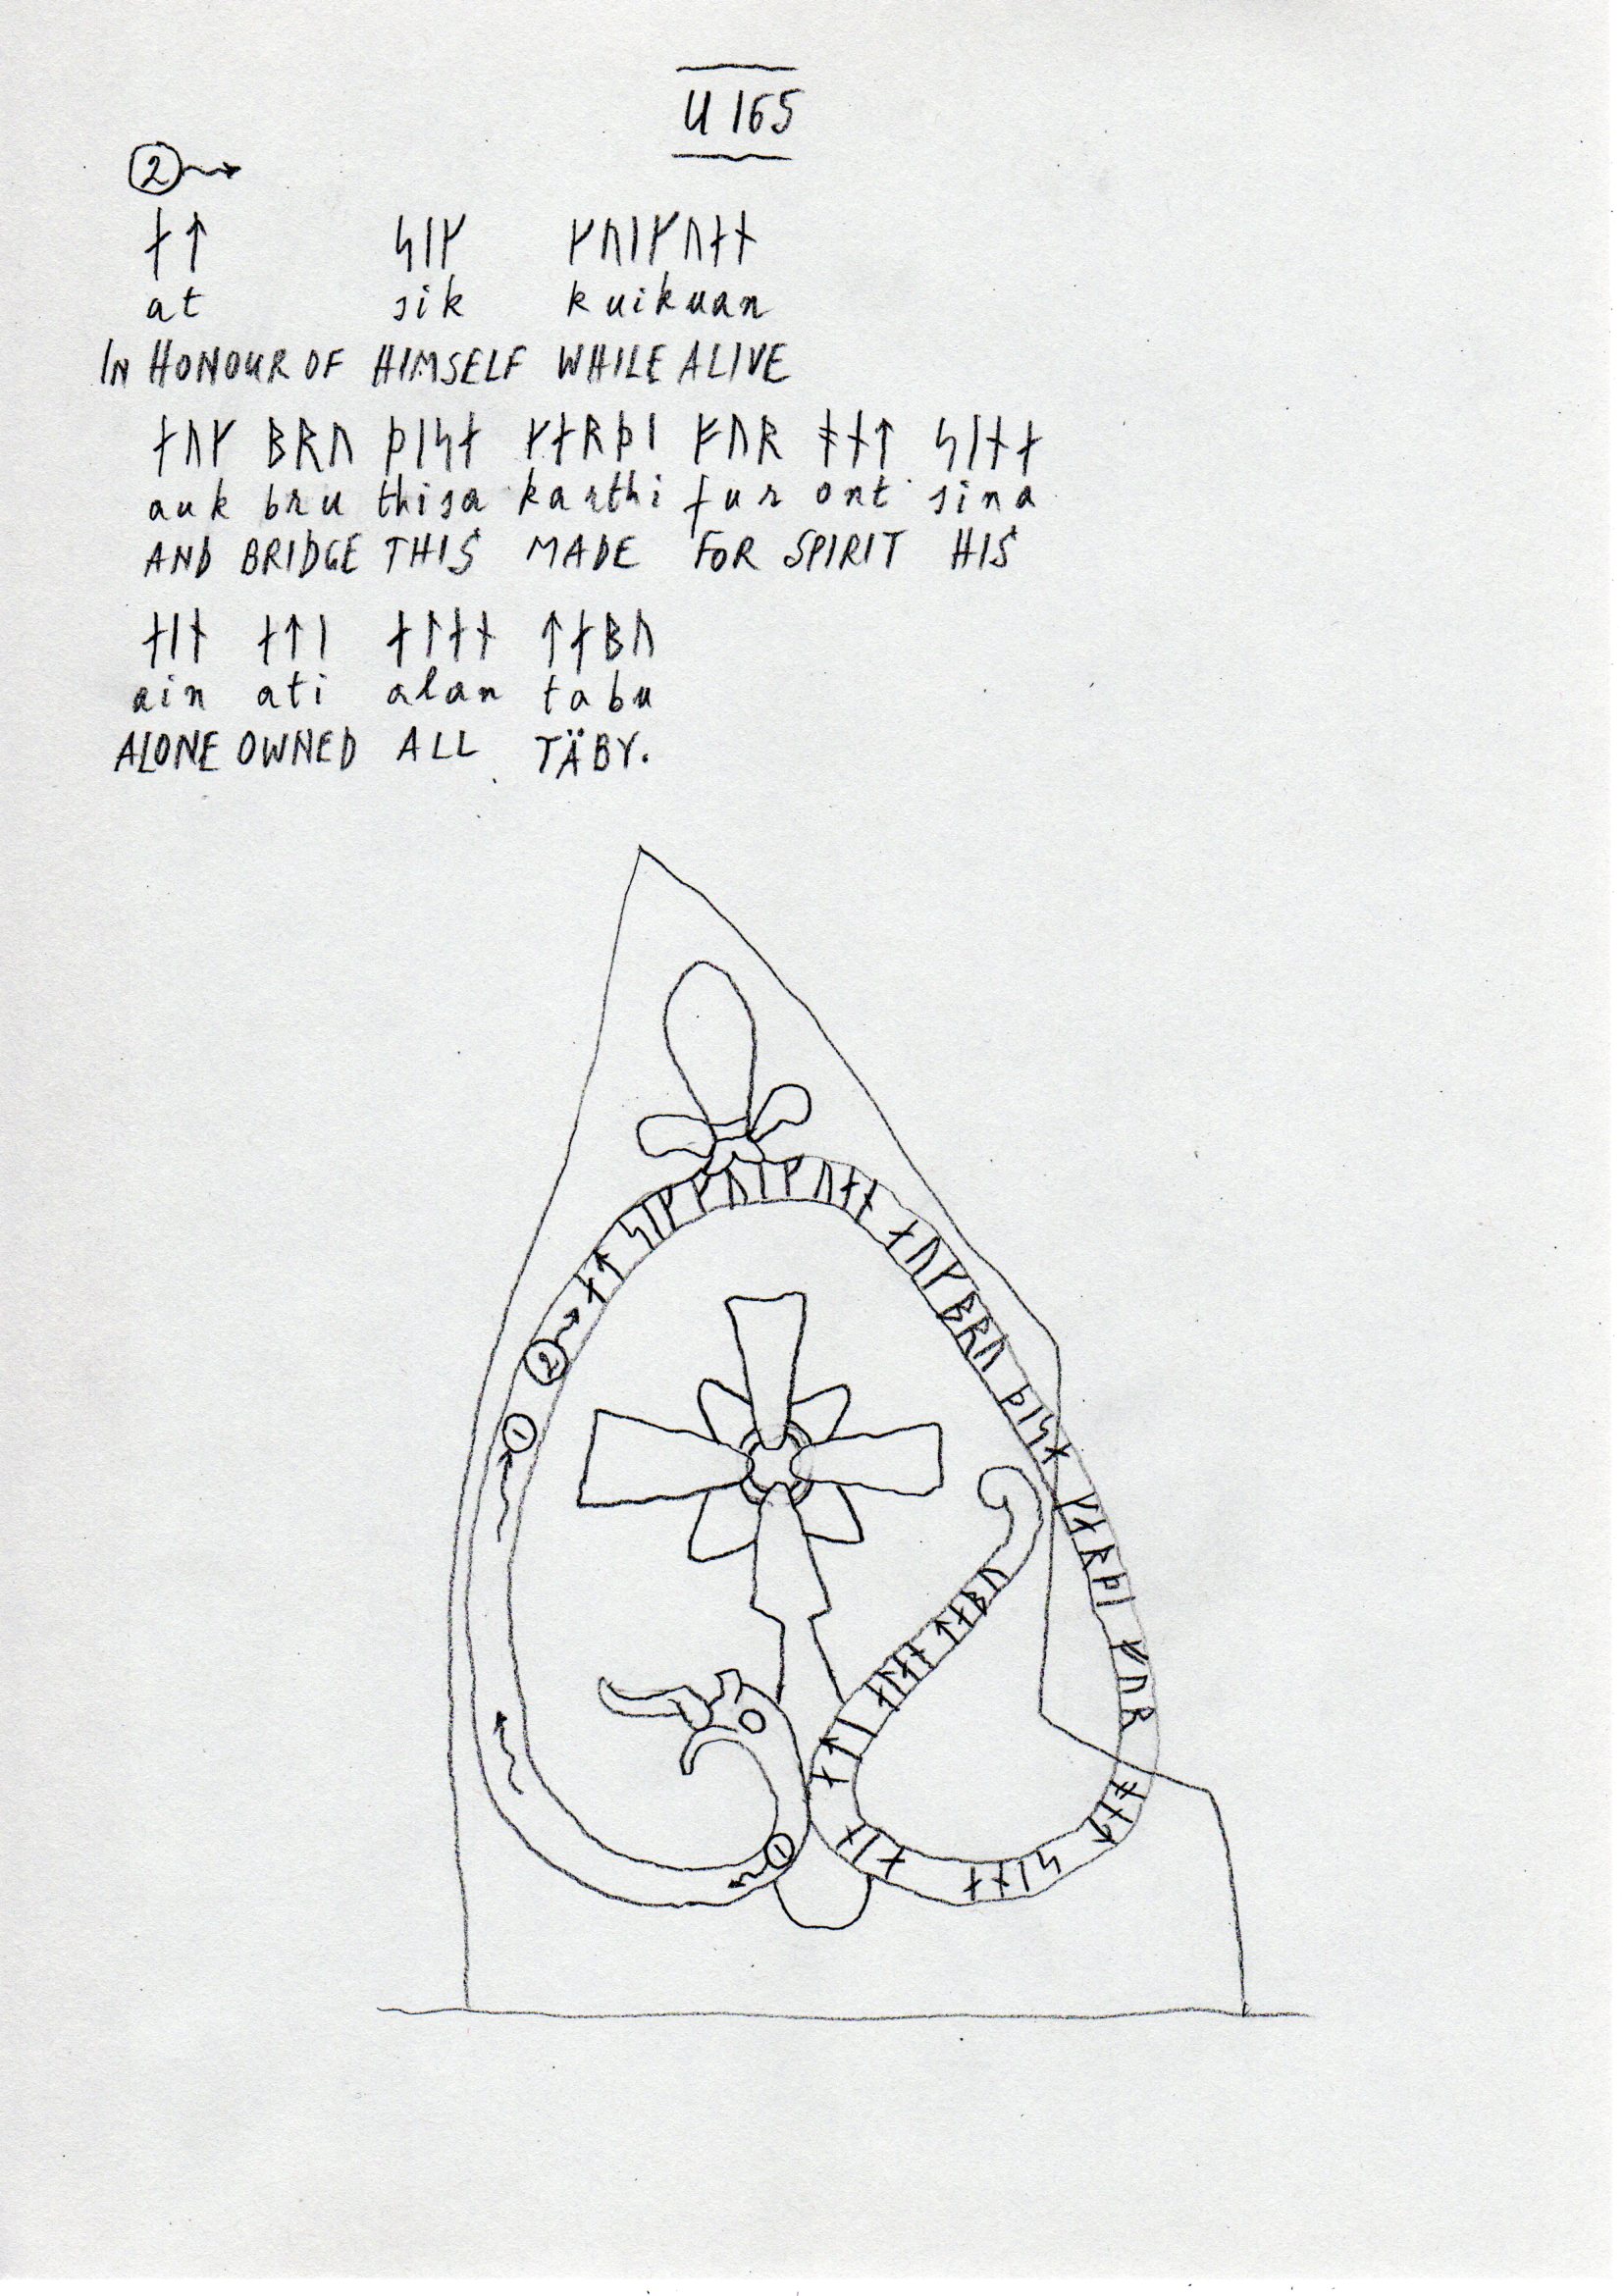 U 165
②
ᛅᛏ ᛋᛁᚴ ᚴᚢᛁᚴᚢᛅᚾ
at sik kuikuan
IN HONOUR OF HIMSELF WHILE ALIVE
ᛅᚢᚴ ᛒᚱᚢ ᚦᛁᛋᛅ ᚴᛅᚱᚦᛁ ᚠᚢᚱ ᚬᚾᛏ ᛋᛁᚾᛅ
auk bru thisa karthi fur ont sina
AND BRIDGE THIS MADE FOR SPIRIT HIS
ᛅᛁᚾ ᛅᛏᛁ ᛅᛚᛅᚾ ᛏᛅᛒᚢ
ain ati alan tabu
ALONE OWNED ALL TÄBY.
①
①
② ᛅᛏ ᛋᛁᚴ ᚴᚢᛁᚴᚢᛅᚾ ᛅᚢᚴ ᛒᚱᚢ ᚦᛁᛋᛅ ᚴᛅᚱᚦᛁ ᚠᚢᚱ ᚬᚾᛏ ᛋᛁᚾᛅ ᛅᛁᚾ ᛅᛏᛁ ᛅᛚᛅᚾ ᛏᛅᛒᚢ